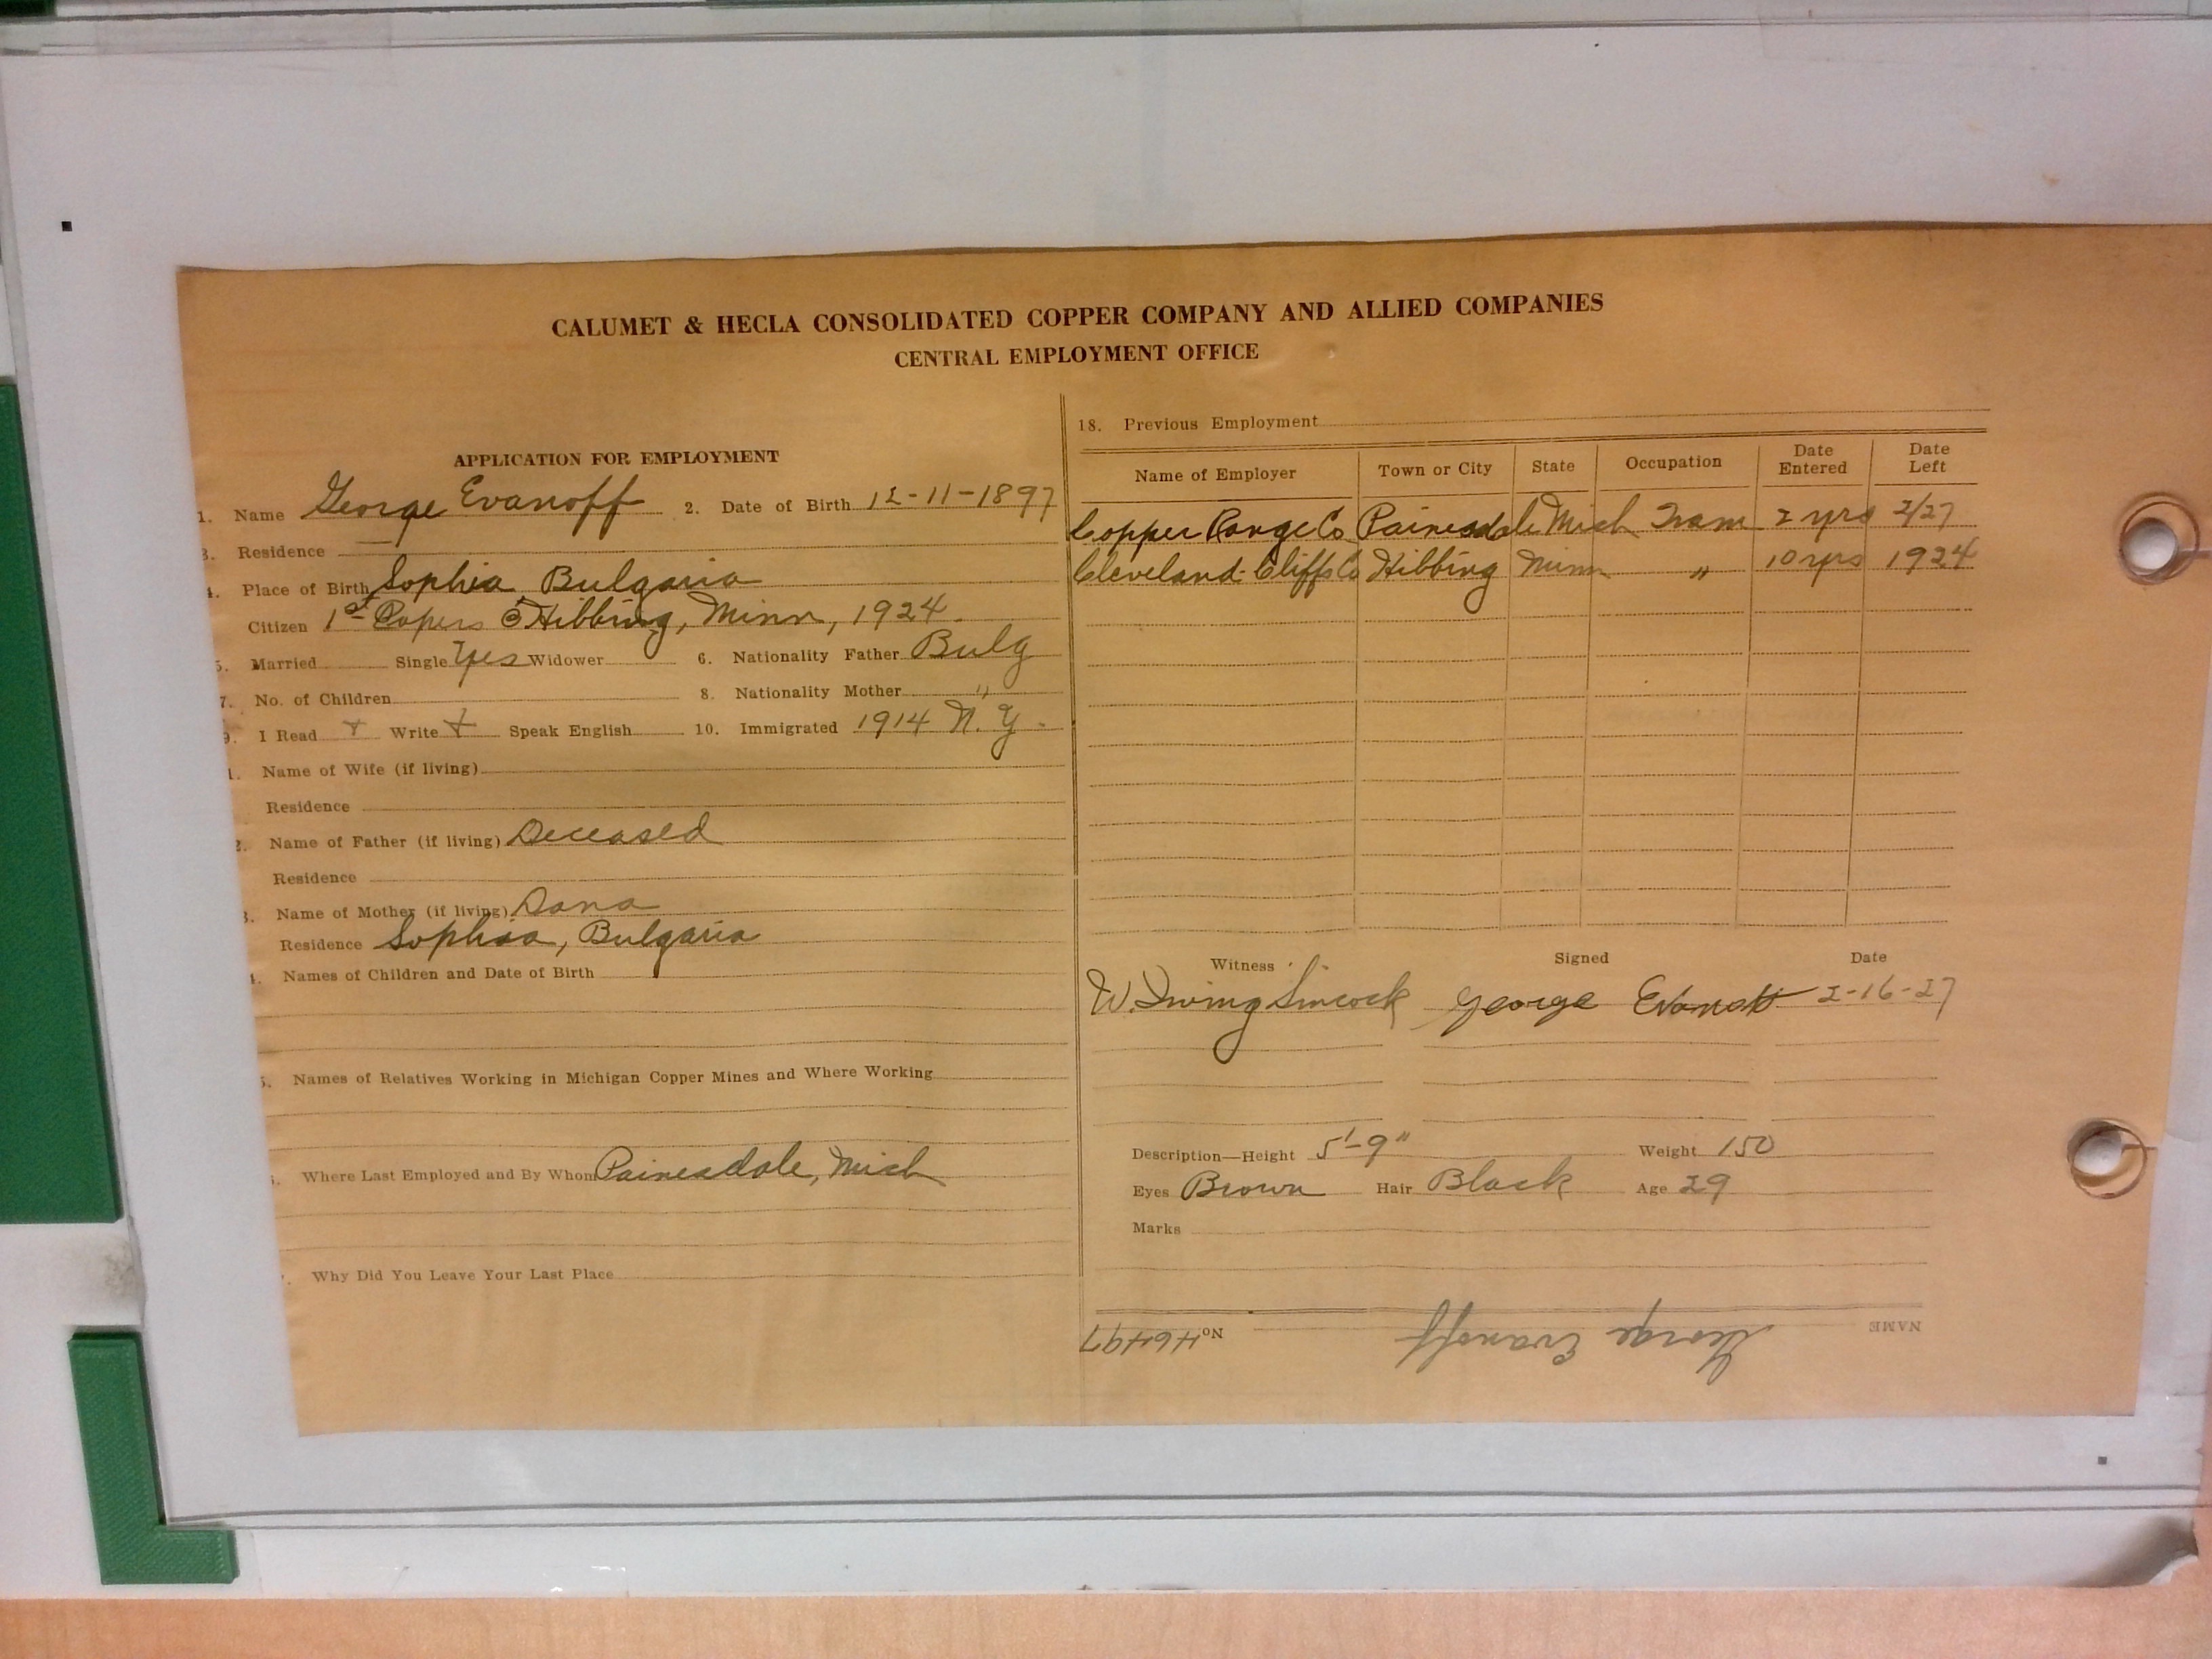 CALUMET & HECLA CONSOLIDATED COPPER COMPANY AND ALLIED COMPANIES
CENTRAL EMPLOYMENT OFFICE
APPLICATION FOR EMPLOYMENT
1. Name George Evanoff 2. Date of Birth 12-11-1897
3. Residence
4. Place of Birth Sophia Bulgaria
Citizen 1st Papers Hibbing, Minn, 1924.
5. Married Single Yes Widower 6. Nationality Father Bulg
7. No. of Children 8. Nationality Mother "
9. I Read + Write + Speak English 10. Immigrated 1914 N.Y.
1. Name of Wife (if living)
Residence
2. Name of Father (if living) Deceased
Residence
3. Name of Mother (if living) Dana
Residence Sophia, Bulgaria
4. Names of Children and Date of Birth
5. Names of Relatives Working in Michigan Copper Mines and Where Working
6. Where Last Employed and By Whom Painesdale, Mich
Why Did You Leave Your Last Place
18. Previous Employment
Name of Employer Town or City State Occupation Date Entered Date Left
Copper Range Co Painesdale Mich Tram 2 yrs 2/27
Cleveland-Cliffs Co Hibbing Minn " 10 yrs 1924
Witness Signed Date
W. Irving Simcock George Evanoff 2-16-27
Description—Height 5'-9" Weight 150
Eyes Brown Hair Black Age 29
Marks
NAME George Evanoff No. 46497